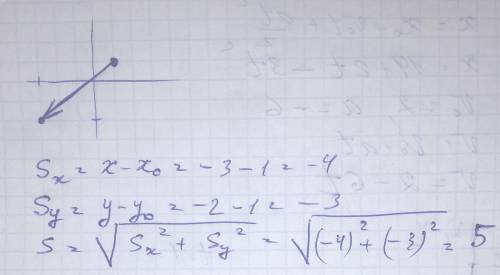 Sx = x - x₀ = -3 - 1 = -4
Sy = y - y₀ = -2 - 1 = -3
S = √(Sx² + Sy²) = √((-4)² + (-3)²) = 5